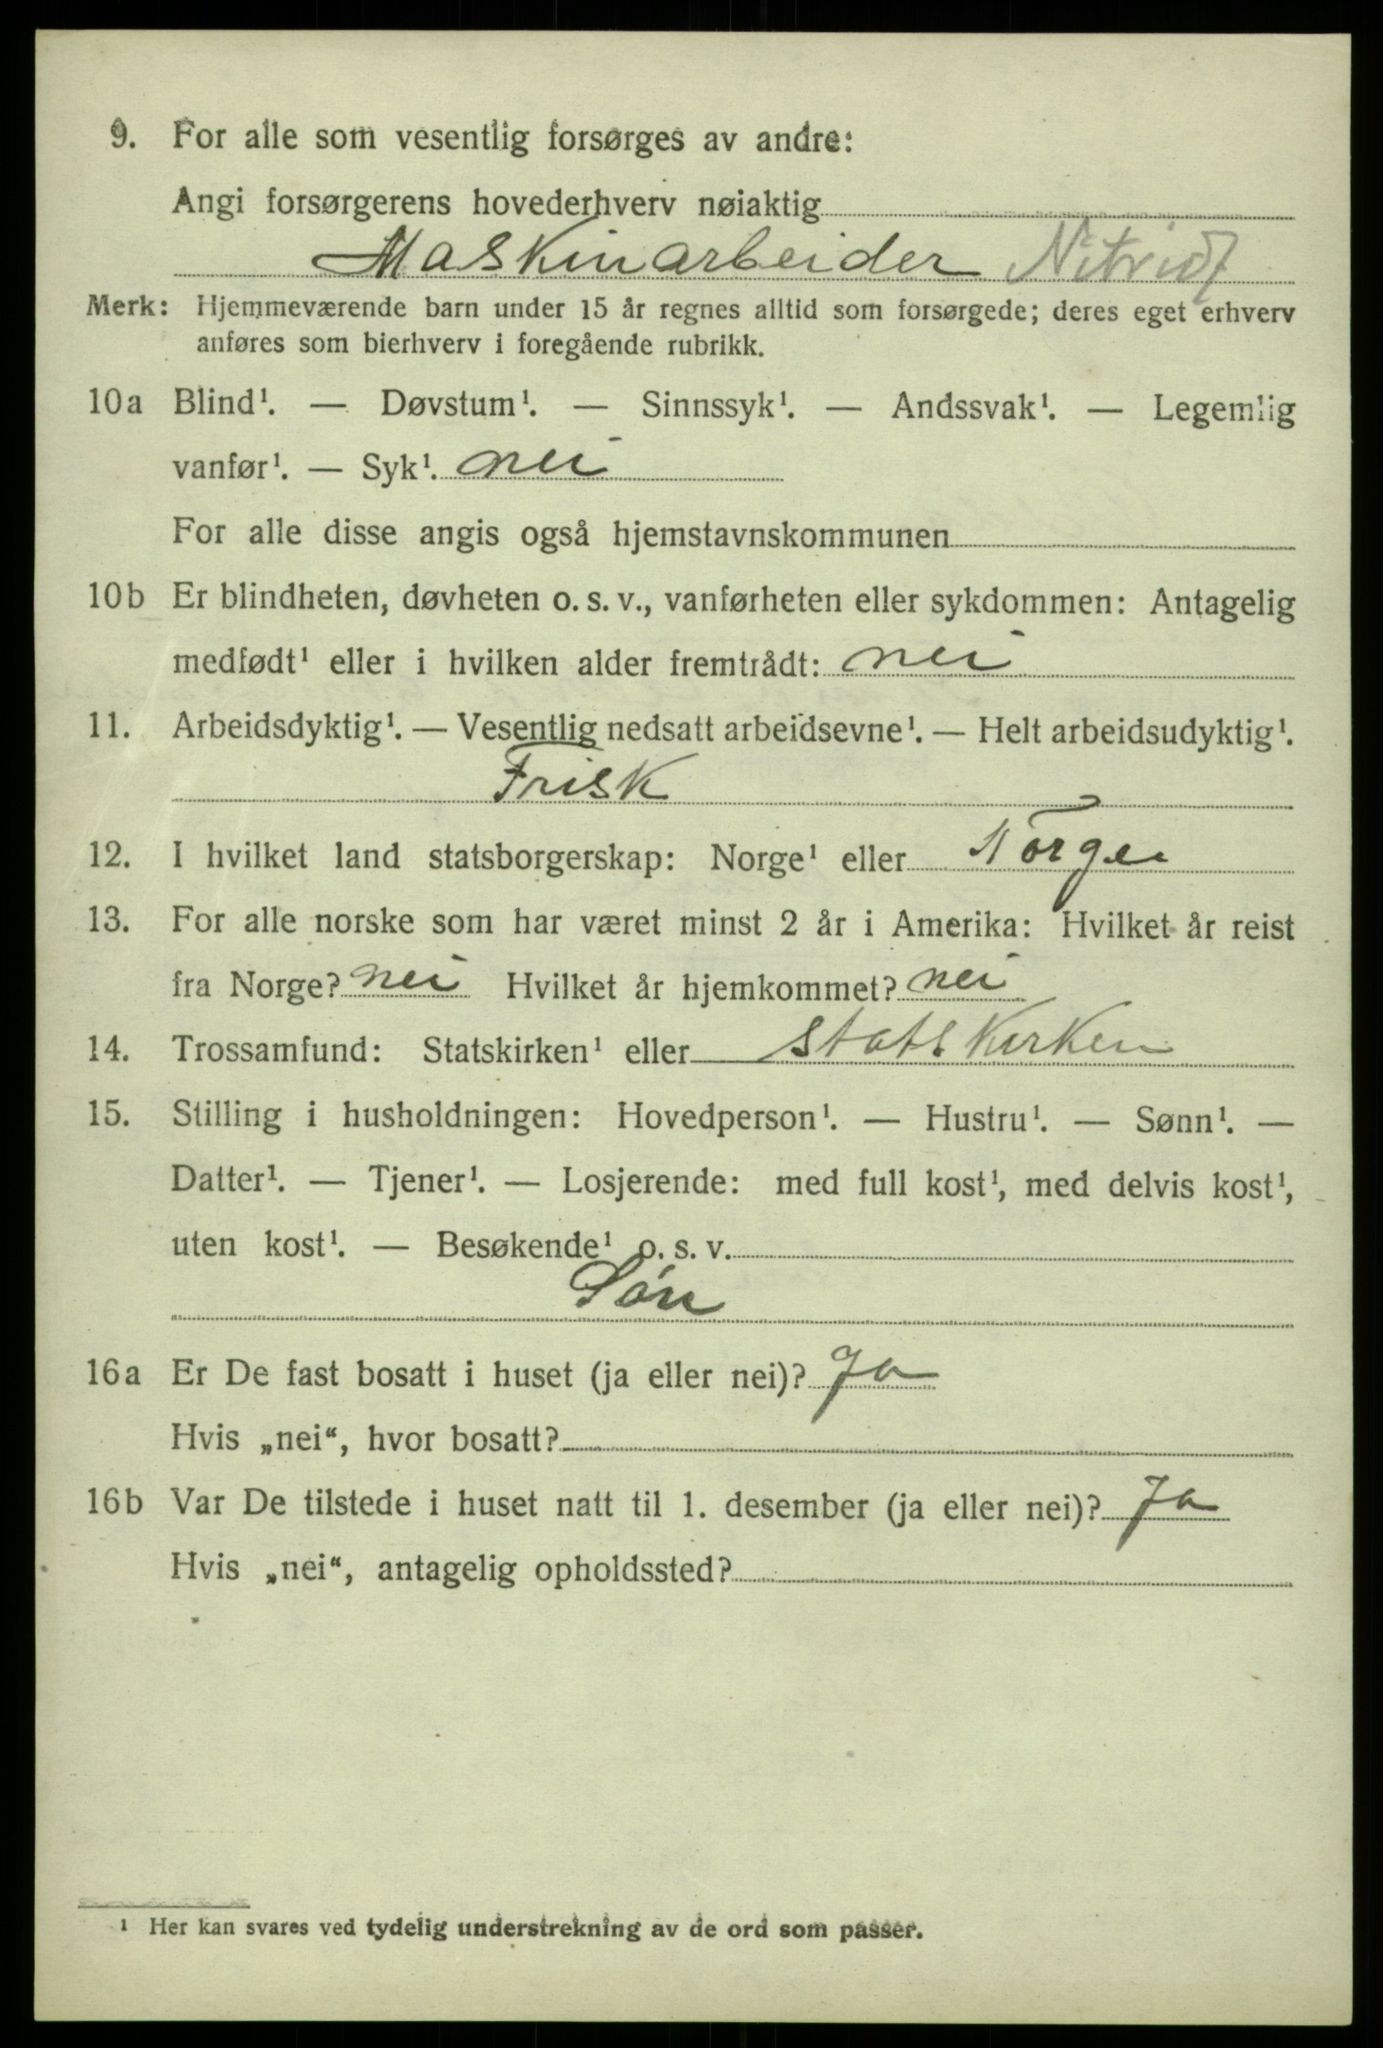 9. For alle som vesentlig forsørges av andre:
Angi forsørgerens hovederhverv nøiaktig
Maskinarbeider Nitridf
Merk: Hjemmeværende barn under 15 år regnes alltid som forsørgede; deres eget erhverv
anføres som bierhverv i foregående rubrikk.
10a Blind¹. — Døvstum¹. — Sinnssyk¹. — Andssvak¹. — Legemlig
vanfør¹. — Syk¹. nei
For alle disse angis også hjemstavnskommunen
10b Er blindheten, døvheten o. s. v., vanførheten eller sykdommen: Antagelig
medfødt¹ eller i hvilken alder fremtrådt: nei
11. Arbeidsdyktig¹. — Vesentlig nedsatt arbeidsevne¹. — Helt arbeidsudyktig¹.
Frisk
12. I hvilket land statsborgerskap: Norge¹ eller Norge
13. For alle norske som har været minst 2 år i Amerika: Hvilket år reist
fra Norge? nei Hvilket år hjemkommet? nei
14. Trossamfund: Statskirken¹ eller Statskirken
15. Stilling i husholdningen: Hovedperson¹. — Hustru¹. — Sønn¹. —
Datter¹. — Tjener¹. — Losjerende: med full kost¹, med delvis kost¹,
uten kost¹. — Besøkende¹ o. s. v.
Sön
16a Er De fast bosatt i huset (ja eller nei)? Ja
Hvis „nei“, hvor bosatt?
16b Var De tilstede i huset natt til 1. desember (ja eller nei)? Ja
Hvis „nei“, antagelig opholdssted?
¹ Her kan svares ved tydelig understrekning av de ord som passer.